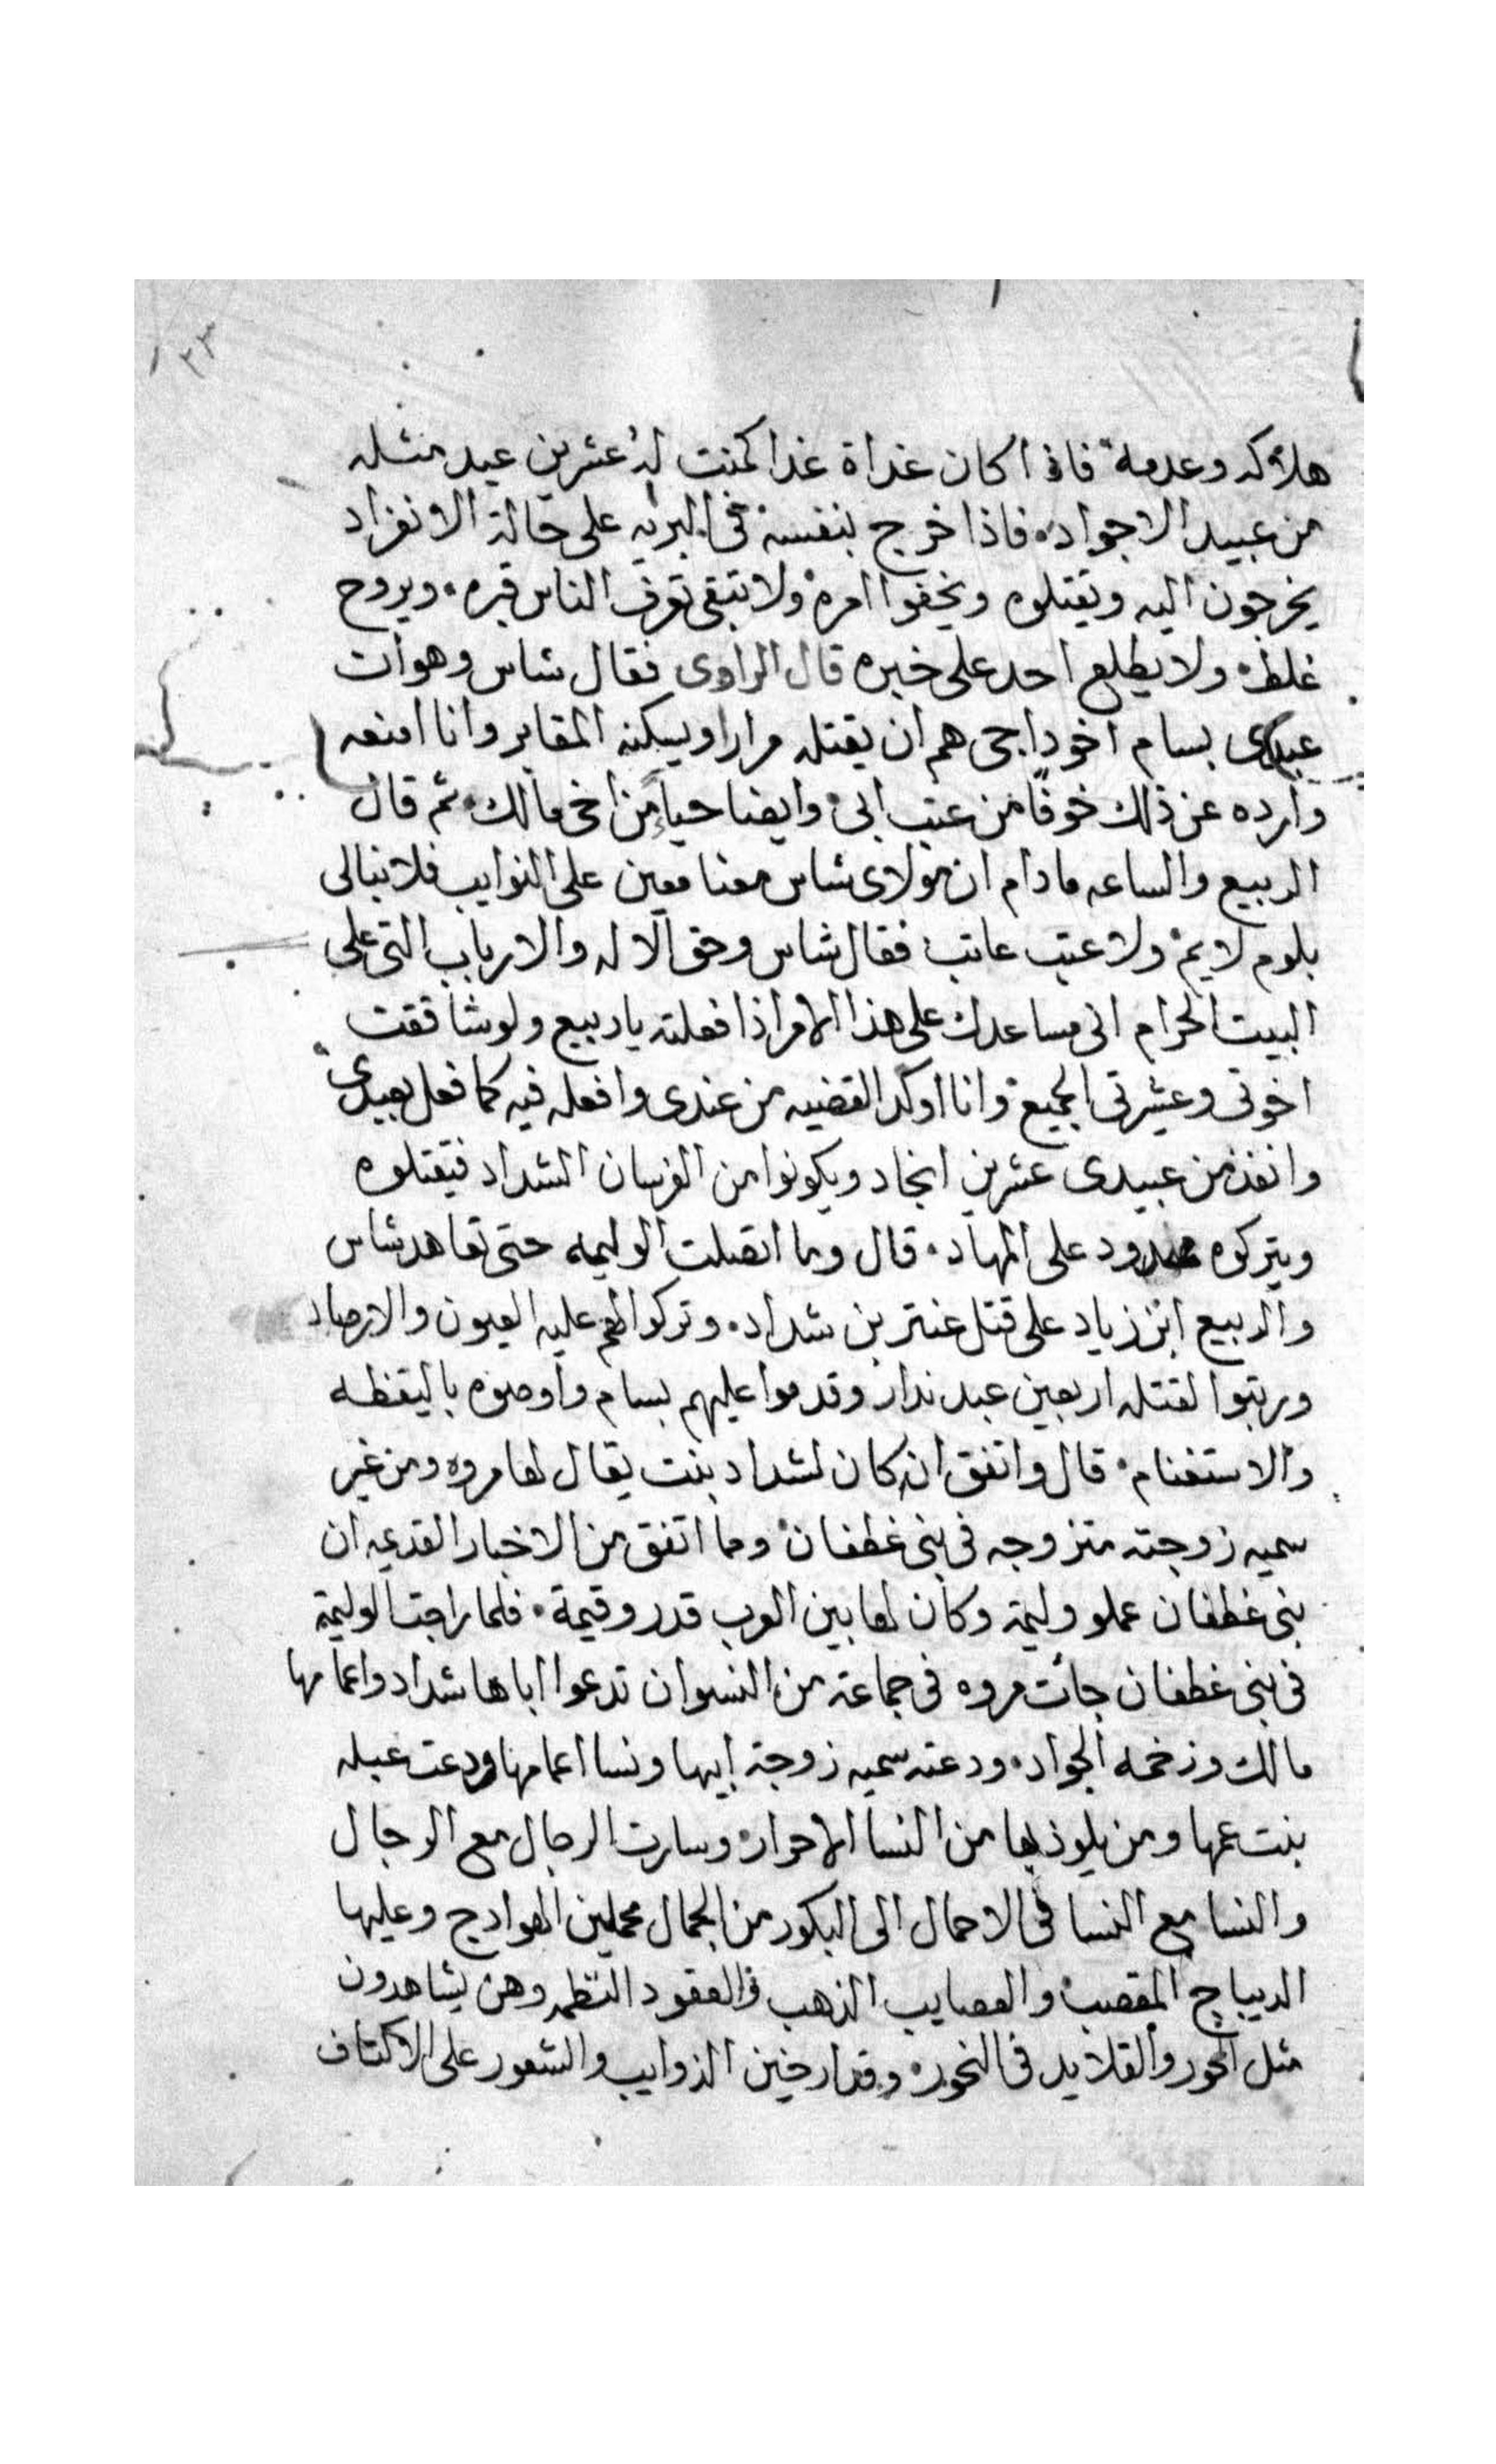 ٣٣
هلاكه وعدمه فاذا كان غداة غدا كمنت له عشرين عبد مثله
من عبيد الاجواد. فاذا خرج بنفسه في البريه على حالة الانفراد
يخرجون اليه ويقتلوه ويخفوا امره ولا تبقى تعرف الناس قبره. ويروح
غلطه ولا يطلع احد على خبره قال الراوى فقال شاس وهوات
عبدى بسام اخو داجى هم ان يقتله مرارا ويسكنه المقابر وانا امنعه
وارده عن ذلك خوفًا من عتب ابى وايضا حياءً من اخى مالك. ثم قال
الربيع والساعه مادام ان مولاى شاس معنا معين على النوايب فلا نبالى
بلوم لايم ولا عتب عاتب فقال شاس وحق الاله والارباب التى على
البيت الحرام انى مساعدك على هذا الامر اذا فعلته ياربيع ولو شاققت
اخوتى وعشيرتى الجميع وانا اوكد القضيه من عندى وافعله فيه كما فعل بعبدى
وانفذ من عبيدى عشرين انجاد ويكونوا من الفرسان الشداد فيقتلوه
ويتركوه ممدود على المهاد. قال وما انقصلت الوليمه حتى تعاهد شاس
والربيع ابن زياد على قتل عنتر بن شداد. وتركوا لهم عليه العيون والارصاد
ورتبوا لقتله اربعين عبد ندار وقدموا عليهم بسام واوصوه باليقظه
والاستغنام. قال واتفق ان كان لشداد بنت يقال لها مروه ومن غير
سميه زوجته متزوجه فى بنى غطفان ومما اتفق من الاخبار القديمه ان
بنى غطفان عملو وليمة وكان لها بين العرب قدر وقيمة. فلما راجت الوليمة
فى بنى غطفان جأت مروه فى جماعة من النسوان تدعوا اباها شداد واعمامها
مالك وزخمه الجواد. ودعته سميه زوجة ابيها ونسا اعمامها ودعت عبله
بنت عمها ومن يلوذ بها من النسا الاحرار وسارت الرجال مع الرجال
والنسا مع النسا فى الاحمال الى البكور من الجمال محملين الهوادج وعليها
الديباج المقصب والعصايب الذهب والعقود النظمه وهن يشاهدون
مثل الحور والقلايد فى النحور وقد ارخين الذوايب والشعور على الاكتاف